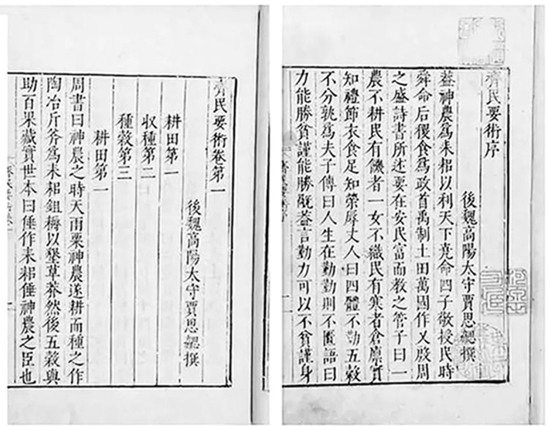 齊民要術序
後魏髙陽太守賈思勰撰
葢神農爲耒耜以利天下堯命四子敬授民時
舜命后稷食爲政首禹制土田萬國作乂殷周
之盛詩書所述要在安民富而教之管子曰一
農不耕民有饑者一女不織民有寒者倉廩實
知禮節衣食足知榮辱丈人曰四體不勤五穀
不分孰爲夫子傳曰人生在勤勤則不匱語曰
力能勝貧謹能勝禍葢言勤力可以不貧謹身
齊民要術卷第一
後魏髙陽太守賈思勰撰
耕田第一
収種第二
種穀第三
耕田第一
周書曰神農之時天雨粟神農遂耕而種之作
陶冶斤斧爲耒耜鉏耨以墾草莽然後五穀與
助百果藏實世本曰倕作耒耜倕神農之臣也